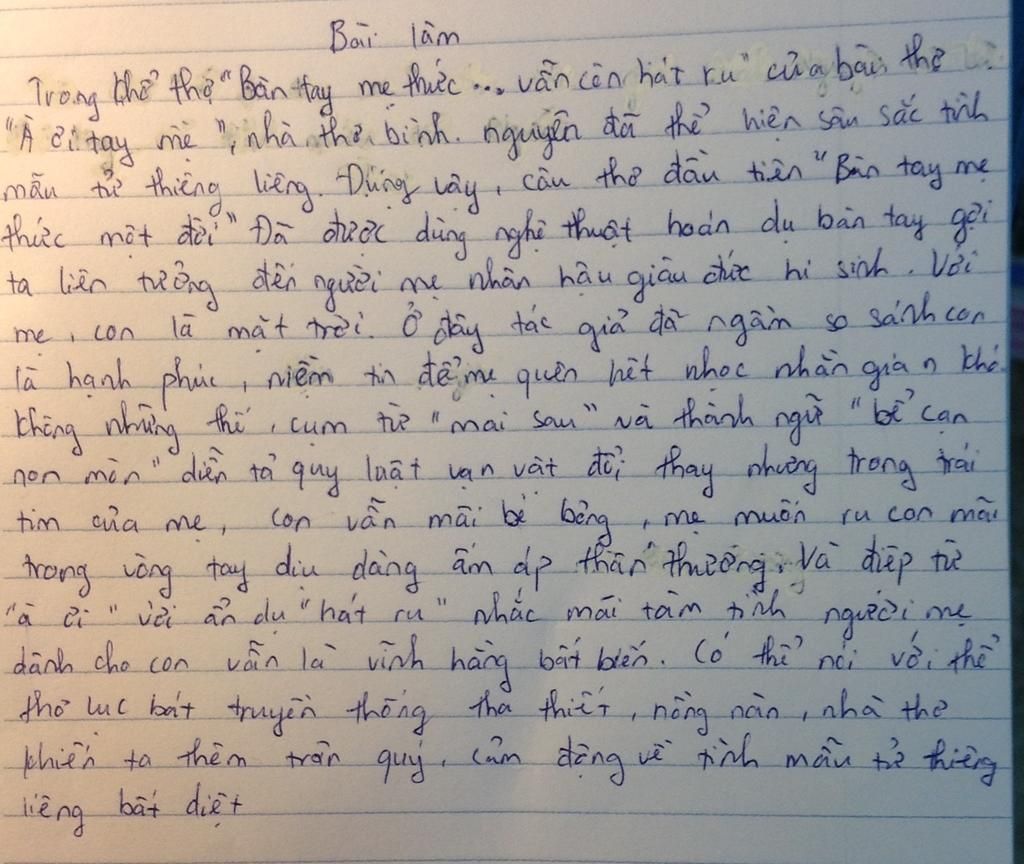 Bài làm
Trong khổ thơ "Bàn tay mẹ thức... vẫn còn hát ru" của bài thơ
"À ơi tay mẹ", nhà thơ bình. nguyên đã thể hiện sâu sắc tình
mẫu tử thiêng liêng. Đúng vậy, câu thơ đầu tiên "Bàn tay mẹ
thức một đời" Đã được dùng nghệ thuật hoán dụ bàn tay gợi
ta liên tưởng đến người mẹ nhân hậu giàu đức hi sinh. Với
mẹ, con là mặt trời. Ở đây tác giả đã ngầm so sánh con
là hạnh phúc, niềm tin để mẹ quên hết nhọc nhằn gian khó.
không những thế, cụm từ "mai sau" và thành ngữ "bể cạn
non mòn" diễn tả quy luật vạn vật đổi thay nhưng trong trái
tim của mẹ, con vẫn mãi bé bỏng, mẹ muốn ru con mãi
trong vòng tay dịu dàng ấm áp thân thương. Và điệp từ
"à ơi" với ẩn dụ "hát ru" nhắc mãi tâm tình người mẹ
dành cho con vẫn là vĩnh hằng bất biến. Có thể nói với thể
thơ lục bát truyền thống tha thiết, nồng nàn, nhà thơ
khiến ta thêm trân quý, cảm động về tình mẫu tử thiêng
liêng bất diệt